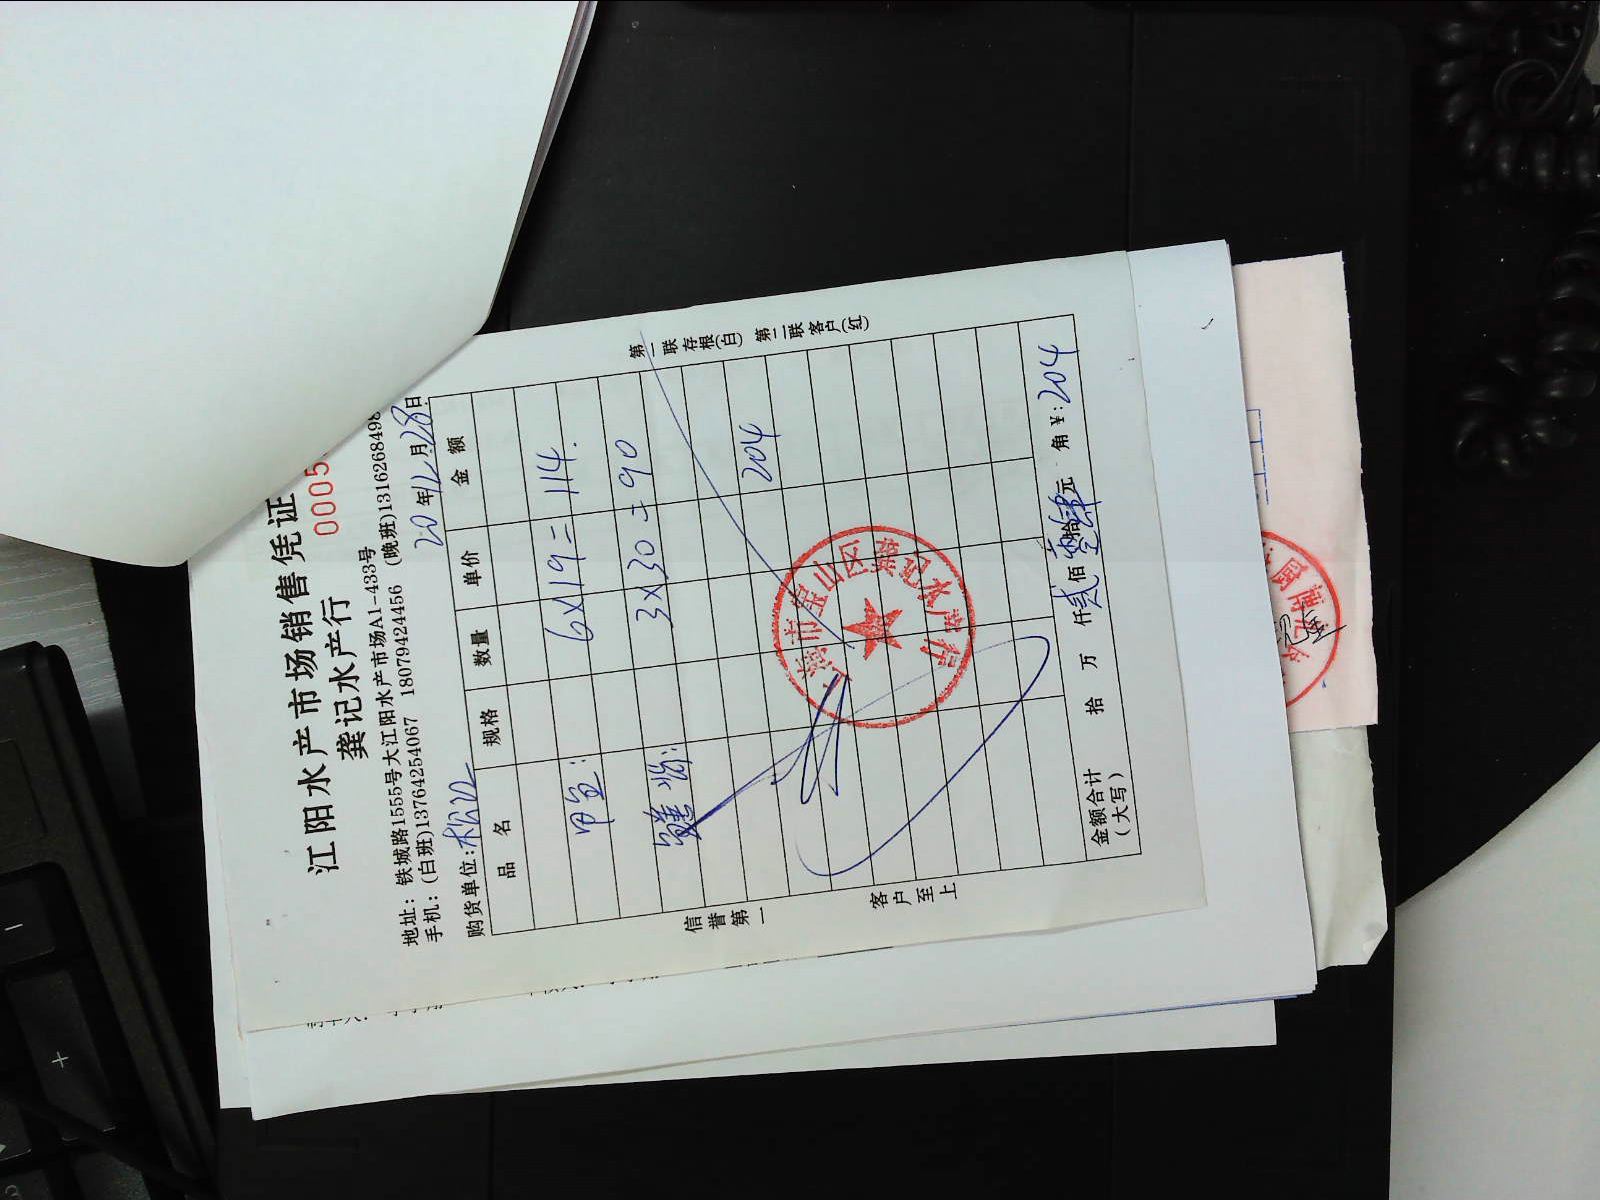 江阳水产市场销售凭证
龚记水产行
0005
地址：铁城路1555号大江阳水产市场A1-433号
手机：(白班)13764254067 18079424456 (晚班)1316268498
购货单位：松江 20 年12月28日
品名 规格 数量 单价 金额
甲鱼： 6×19= 114.
3×30= 90
204
金额合计（大写） 拾 万 仟贰佰零拾肆元 角 ¥：204
信誉第一 客户至上
第一联存根(白) 第二联客户(红)
上海市宝山区龚记水产行